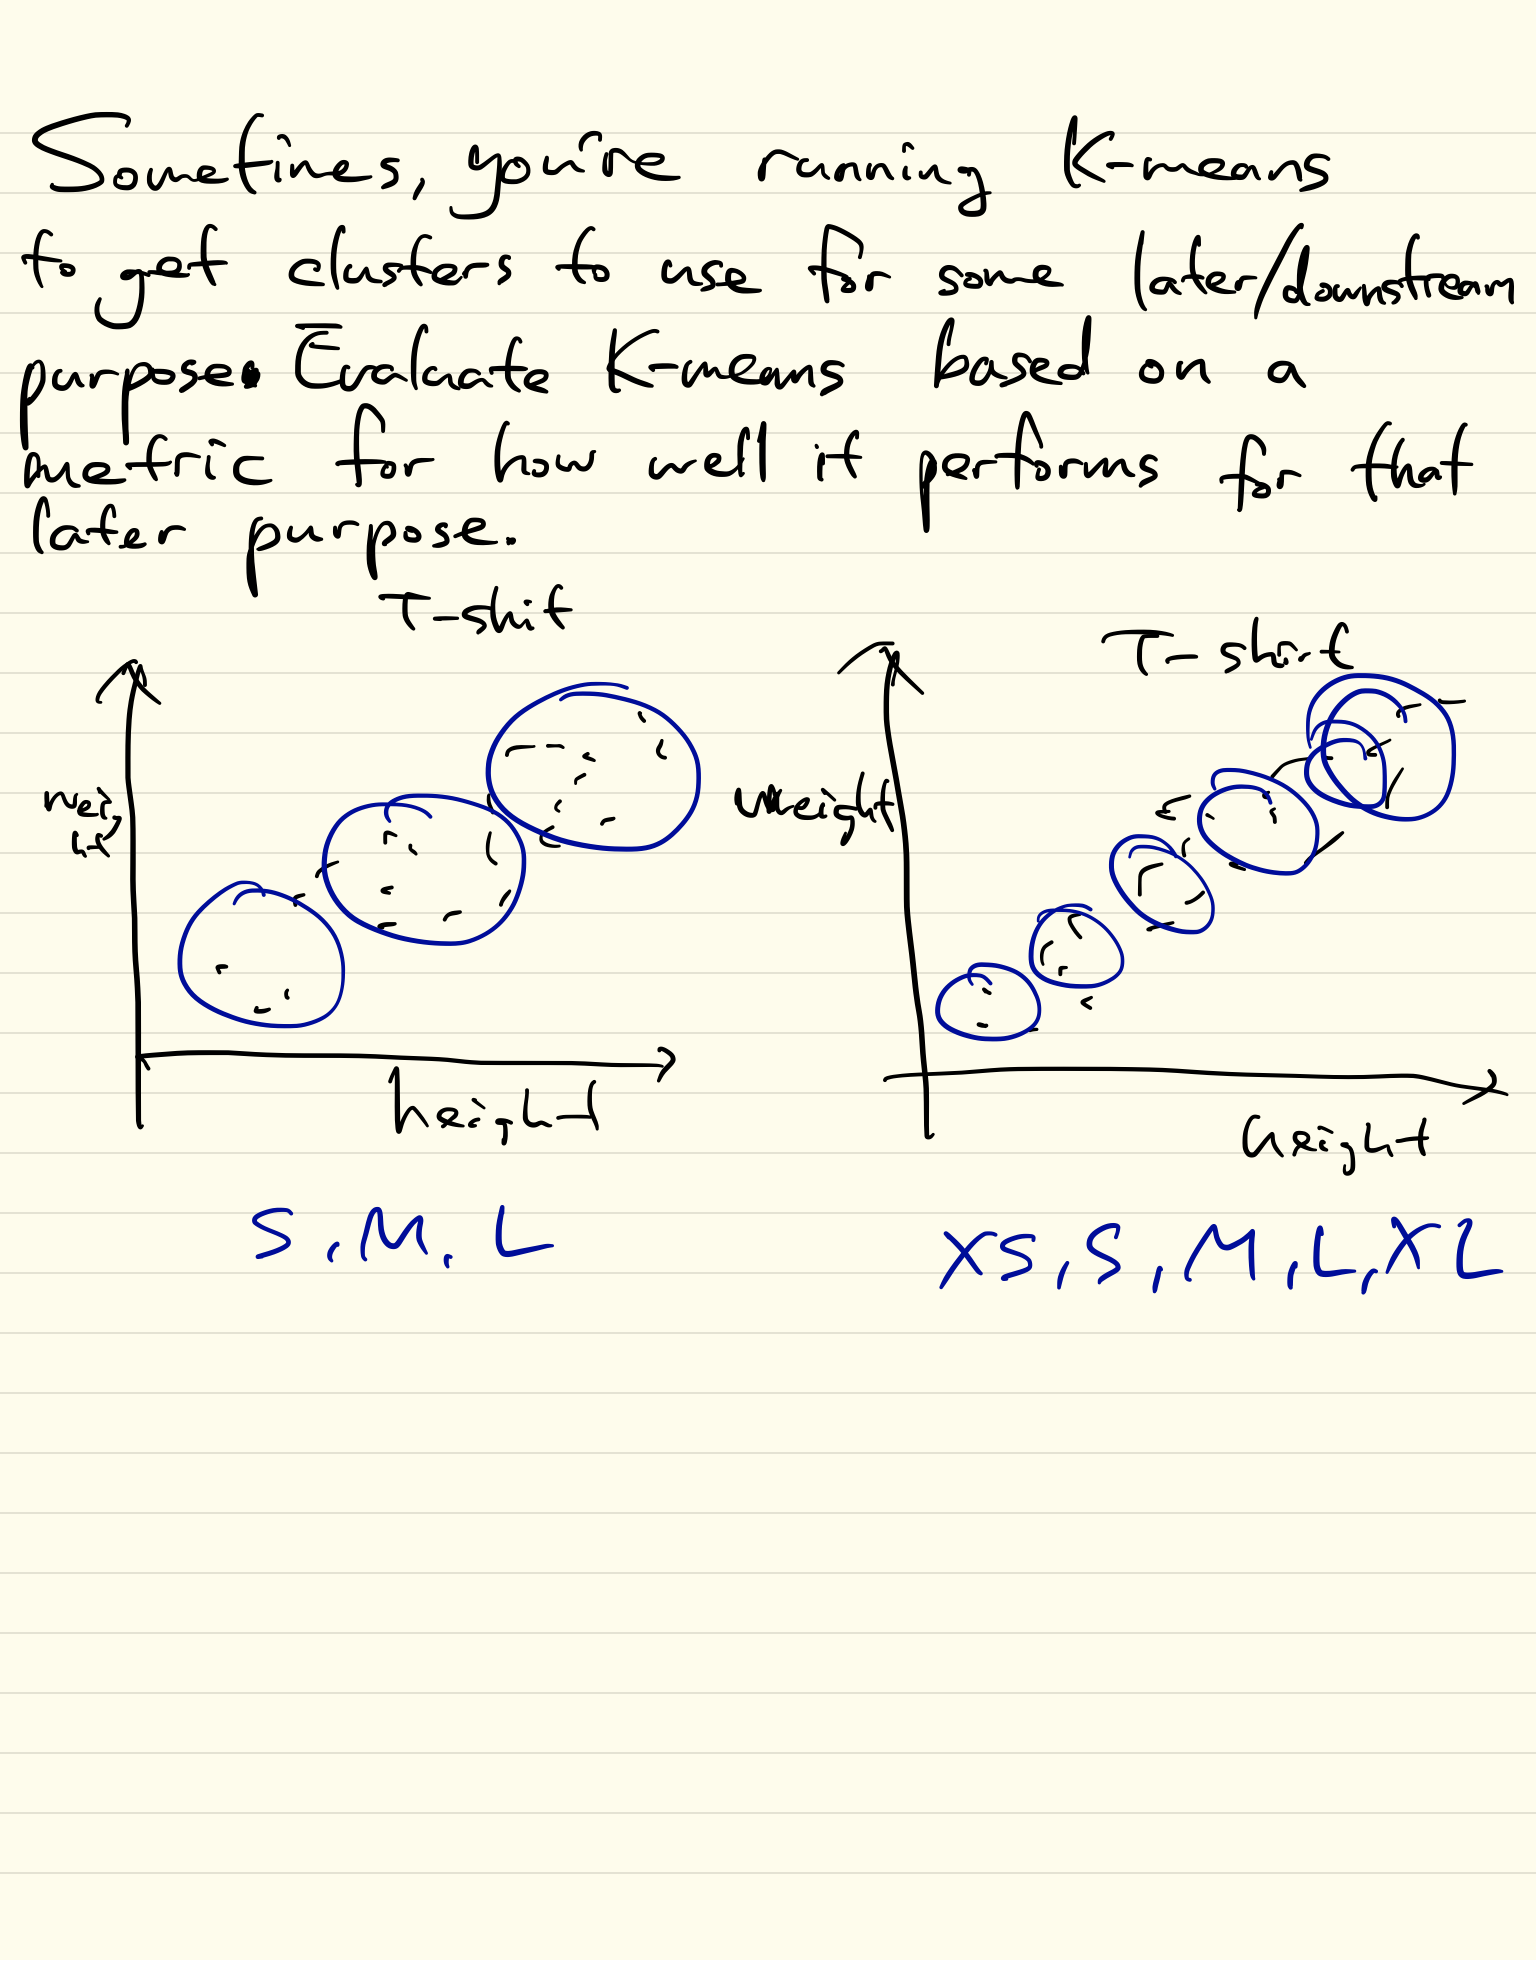 Sometimes, you're running K-means
to get clusters to use for some later/downstream
purpose. Evaluate K-means based on a
metric for how well it performs for that
later purpose.
T-shit
T-shirt
weight
height
height
S, M, L
XS, S, M, L, XL